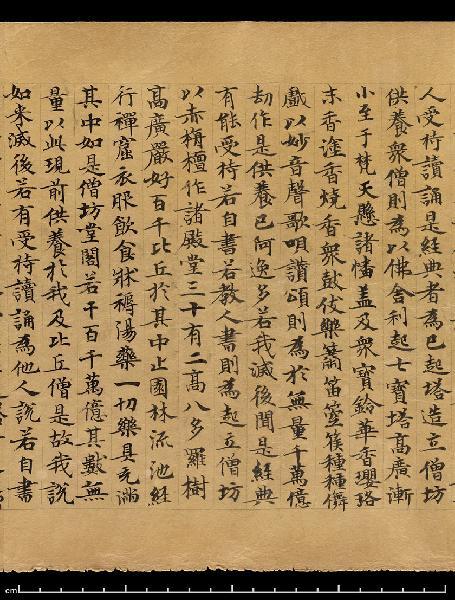 人受持讀誦是經典者為已起塔造立僧坊
供養衆僧則為以佛舍利起七寶塔高廣漸
小至于梵天懸諸幡盖及衆寶鈴華香瓔珞
末香塗香燒香衆鼓伎樂蕭笛箜篌種種儛
戲以妙音聲歌唄讃頌則為於無量千萬億
劫作是供養已阿逸多若我滅後聞是經典
有能受持若自書若教人書則為起立僧坊
以赤栴檀作諸殿堂三十有二高八多羅樹
高廣嚴好百千比丘於其中止園林流池經
行禪窟衣服飲食牀褥湯藥一切樂具充滿
其中如是僧坊堂閣若干百千萬億其數無
量以此現前供養於我及比丘僧是故我說
如來滅後若有受持讀誦為他人說若自書
cm